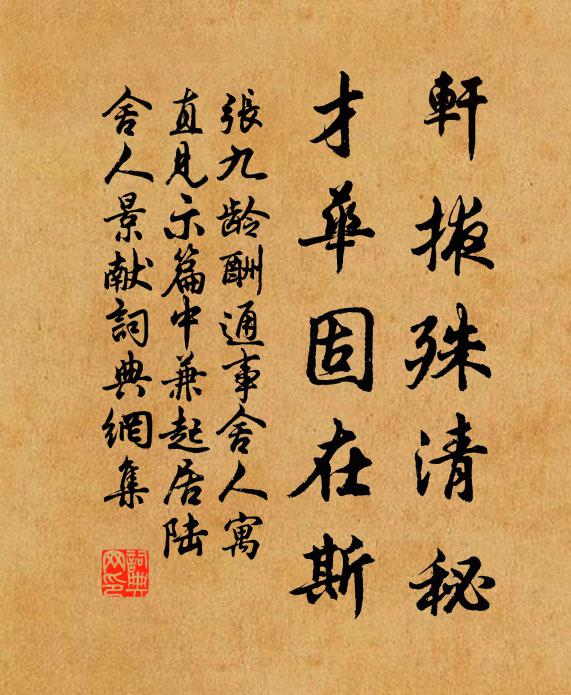 軒掖殊清秘
才華固在斯
張九龄酬通事舍人寓
直見示篇中兼起居陆
舍人景献詞典網集
詞典网印